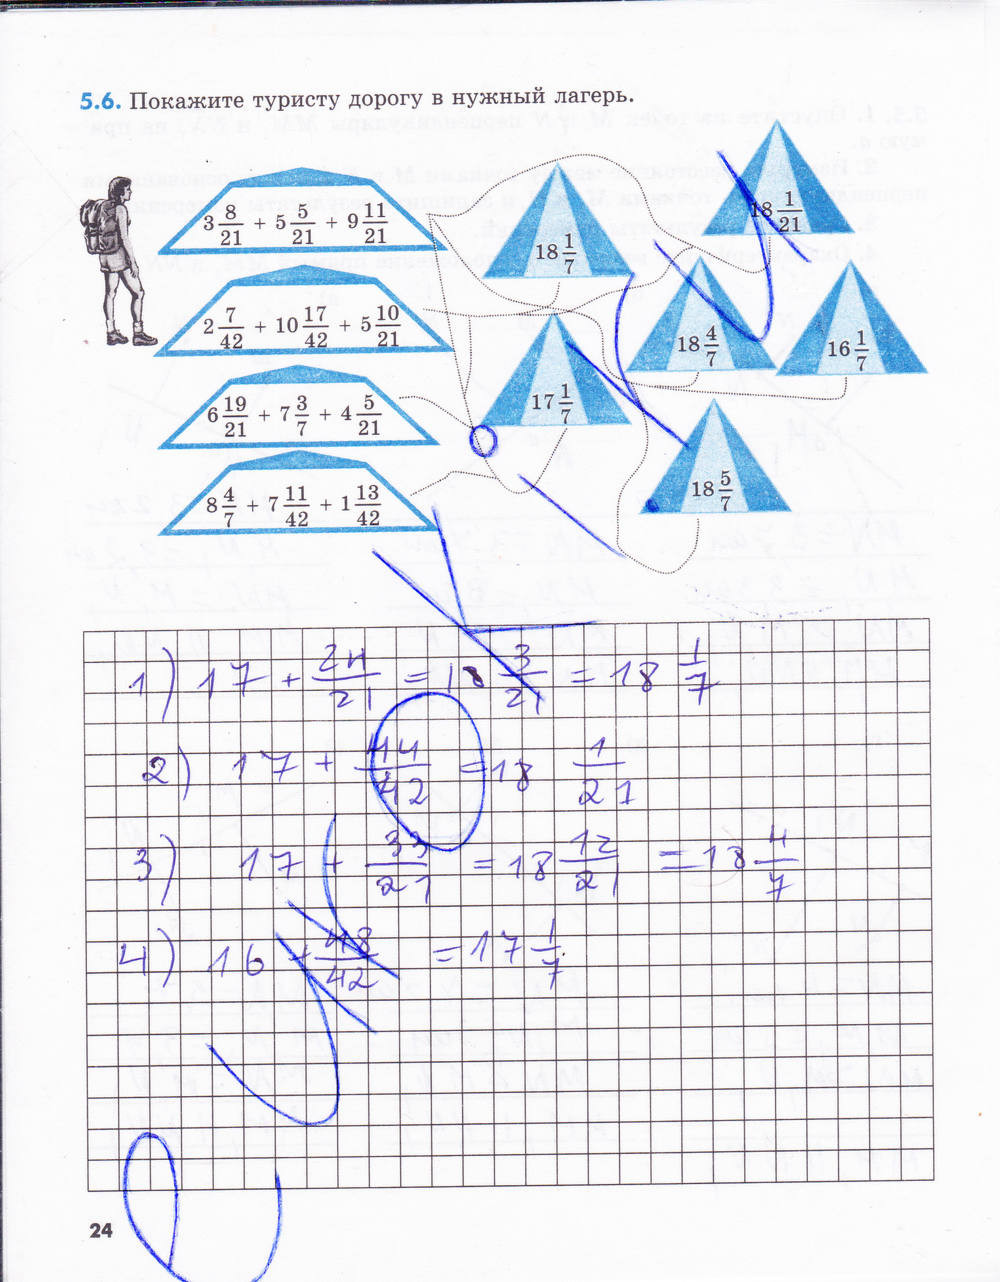 5.6. Покажите туристу дорогу в нужный лагерь.
3 8/21 + 5 5/21 + 9 11/21
2 7/42 + 10 17/42 + 5 10/21
6 19/21 + 7 3/7 + 4 5/21
8 4/7 + 7 11/42 + 1 13/42
18 1/7
18 1/21
18 4/7
16 1/7
17 1/7
18 5/7
1) 17 + 24/21 = 18 3/21 = 18 1/7
2) 17 + 44/42 = 18 1/21
3) 17 + 33/21 = 18 12/21 = 18 4/7
4) 16 + 48/42 = 17 1/7
24